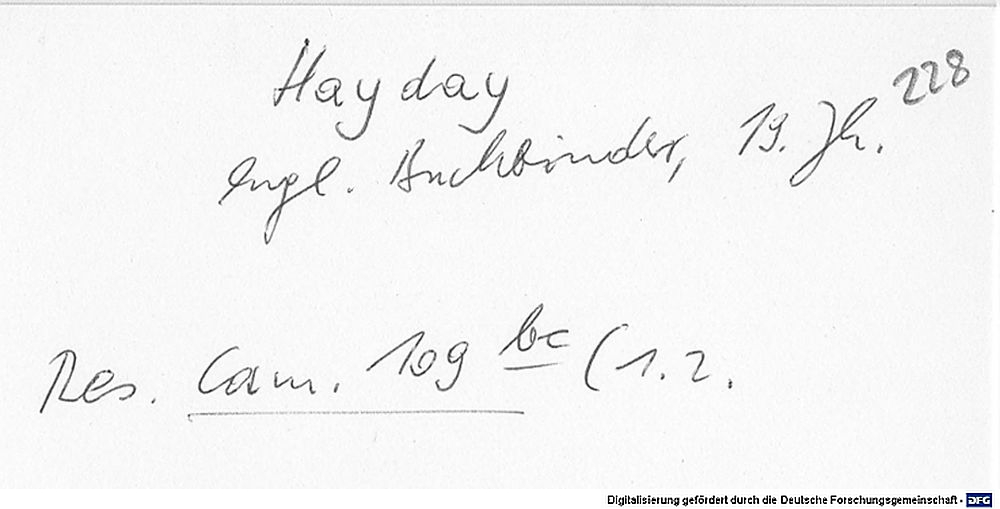 Hayday
228
engl. Buchbinder, 19. Jh.
Res. Cam. 109 bc (1.2.
Digitalisierung gefördert durch die Deutsche Forschungsgemeinschaft - DFG